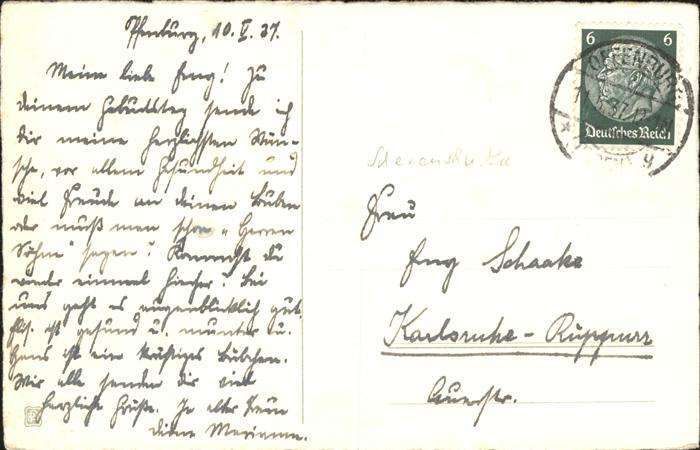 Offenburg, 10. V. 37.
Meine liebe Eng! Zu
deinem Geburtstag sende ich
dir meine herzlichsten Wün-
sche, vor allem Gesundheit und
viel Freude an deinen Buben
oder muß man schon „Herren
Söhne" sagen? Kommst du
wieder einmal hierher? Bei
uns geht es augenblicklich gut.
ist gesund u. munter u.
Hans ist ein kräftiges Bübchen.
Wir alle senden dir viel
herzliche Grüße. In alter Treue
deine Marianne.
6 6
Deutsches Reich
OFFENBURG
Frau
Eng Schaake
Karlsruhe-Rüppurr
Auerstr.